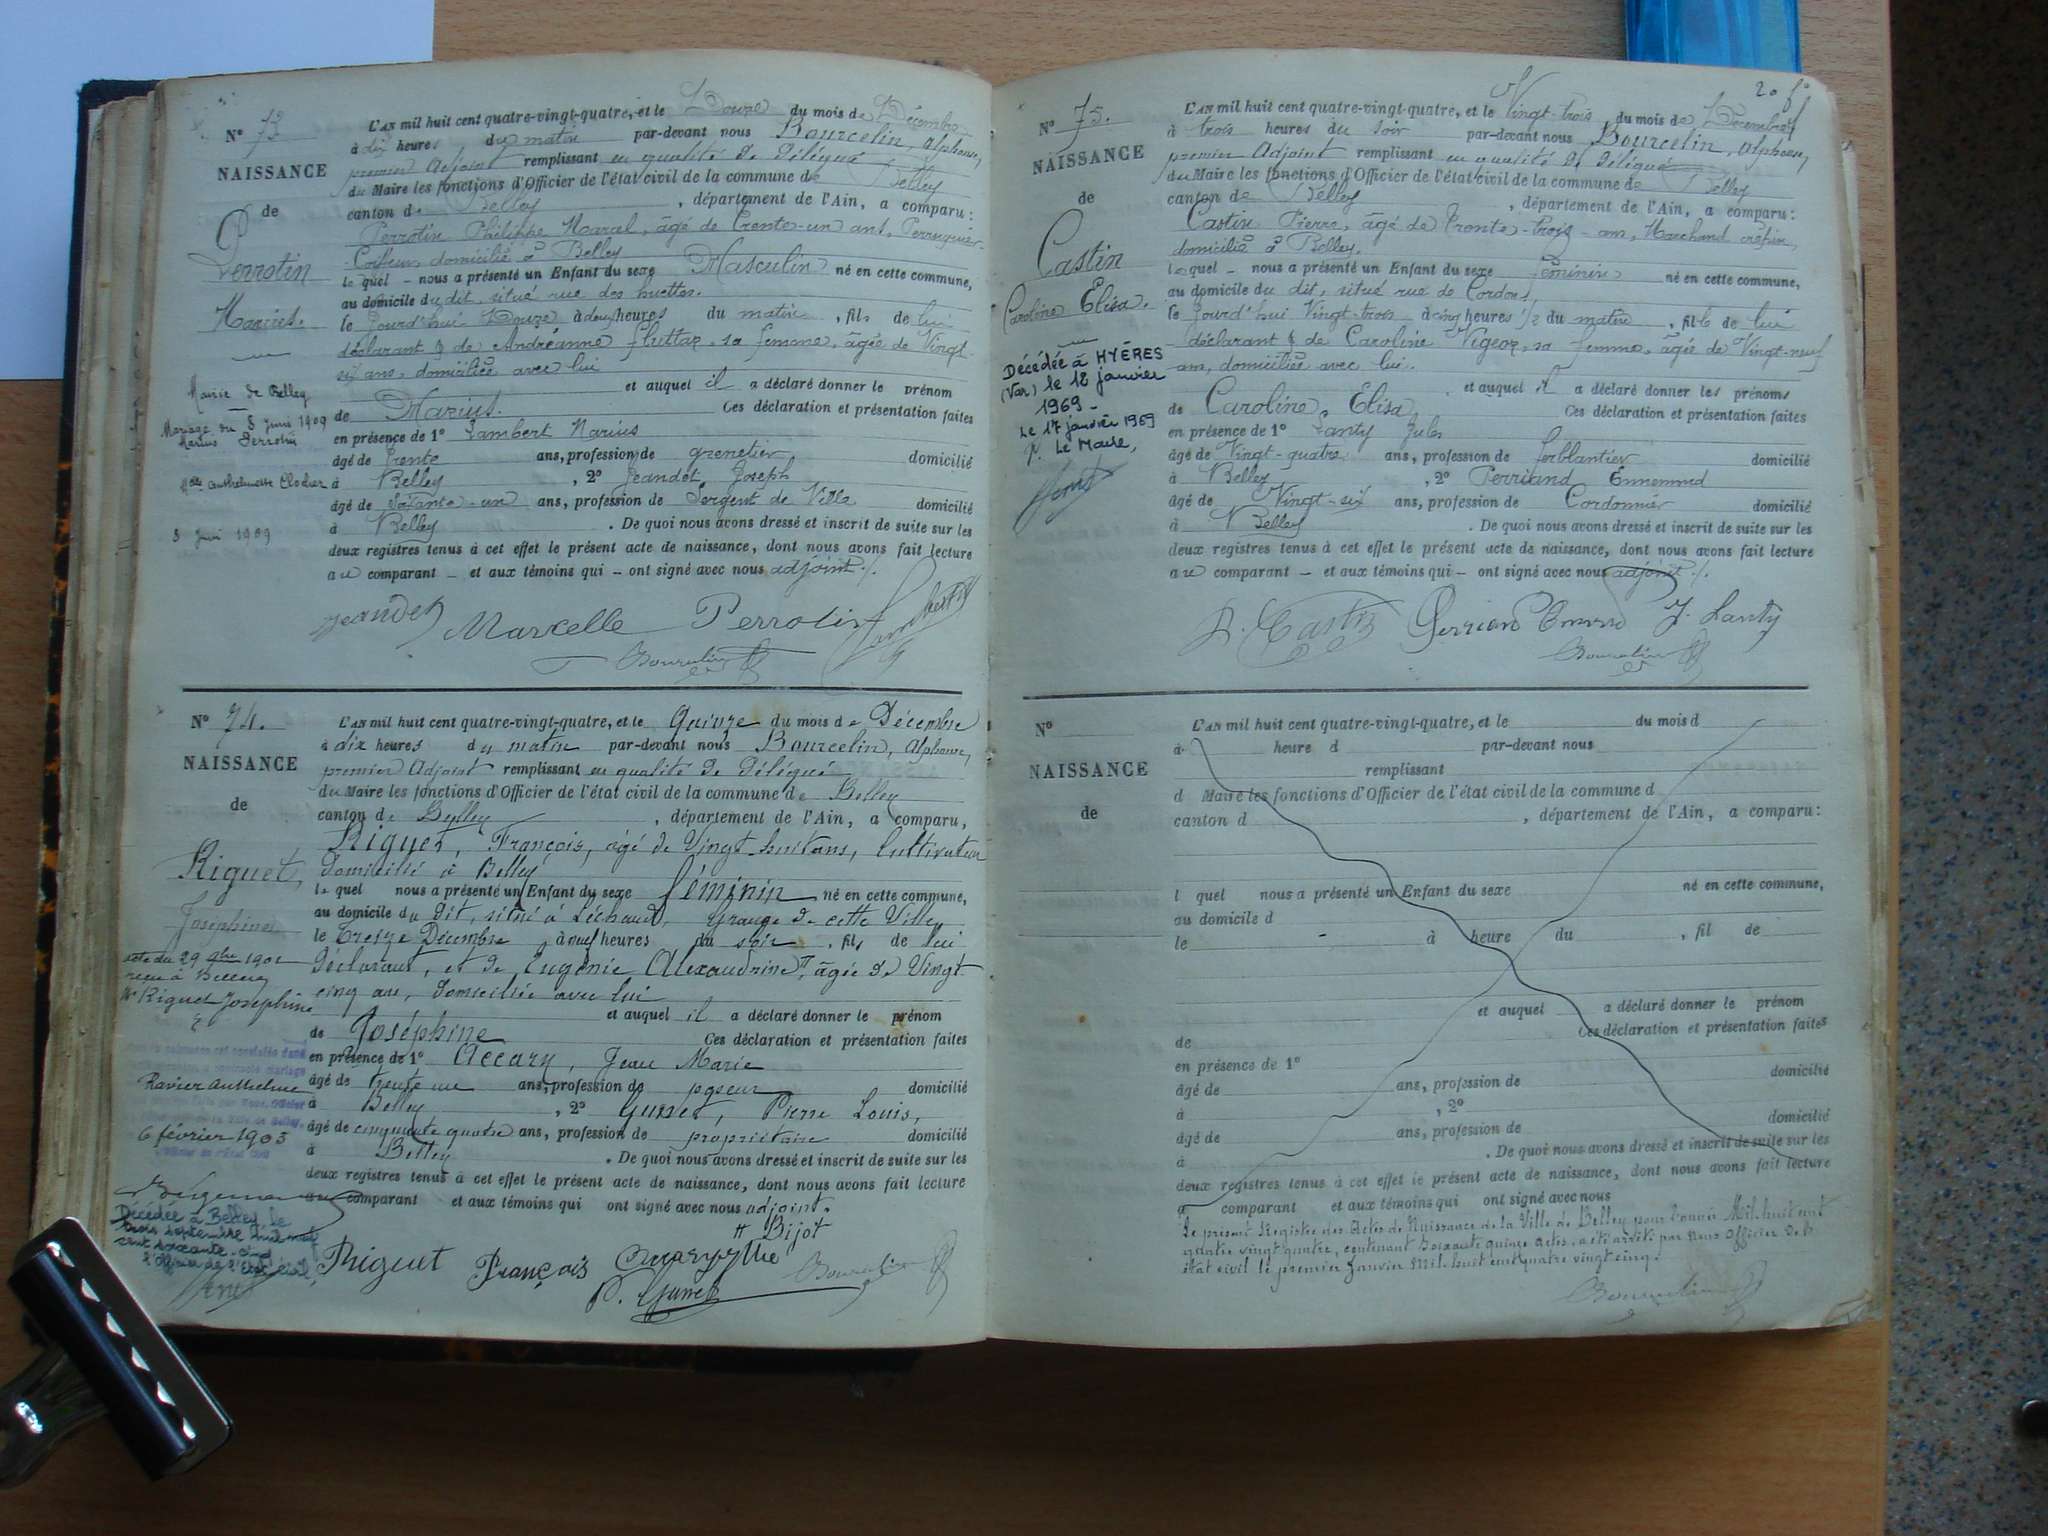 N° 73
NAISSANCE
de
Perrotin
Marius.
Mairie de Belley
Mariage du 5 juin 1909
Marius Perrotin
Mlle Anthelmette Clodier
5 juin 1909
L'AN mil huit cent quatre-vingt-quatre, et le Douze du mois de Décembre
à dix heures du matin par-devant nous Bourcelin, Alphonse,
premier Adjoint remplissant en qualité de délégué
du Maire les fonctions d'Officier de l'état civil de la commune de Belley
canton de Belley, département de l'Ain, a comparu :
Perrotin Philippe Marcel, âgé de trente-un ans, Perruquier-
Coiffeur, domicilié à Belley
lequel – nous a présenté un Enfant du sexe Masculin né en cette commune,
au domicile du dit, situé rue des
le jourd'hui Douze à heures du matin, fils de lui
déclarant & de Andréanne sa femme, âgée de Vingt-
six ans, domiciliée avec lui
et auquel il a déclaré donner le prénom
de Marius. Ces déclaration et présentation faites
en présence de 1° Lambert Marius
âgé de trente ans, profession de grenetier domicilié
à Belley, 2° Jeandet Joseph
âgé de Soixante-un ans, profession de Sergent de Ville domicilié
à Belley. De quoi nous avons dressé et inscrit de suite sur les
deux registres tenus à cet effet le présent acte de naissance, dont nous avons fait lecture
au comparant – et aux témoins qui – ont signé avec nous adjoint ./.
Jeandet Marcelle Perrotin Lambert M
Bourcelin
N° 74.
NAISSANCE
de
Riguet,
Joséphine
reçu à Belley
Riguet Joséphine
Ravier Anthelme
6 février 1903
Décédée à Belley le
trois septembre mil neuf
cent soixante-cinq
L'Officier de l'état civil,
L'AN mil huit cent quatre-vingt-quatre, et le Quinze du mois de Décembre
à dix heures du matin par-devant nous Bourcelin, Alphonse,
premier Adjoint remplissant en qualité de délégué
du Maire les fonctions d'Officier de l'état civil de la commune de Belley
canton de Belley, département de l'Ain, a comparu,
Riguet, François, âgé de Vingt-huit ans, Cultivateur
domicilié à Belley
lequel nous a présenté un Enfant du sexe féminin né en cette commune,
au domicile du dit, situé à Grange de cette Ville,
le treize Décembre à neuf heures du soir, fils de lui
déclarant, et de Eugénie Alexandrine #, âgée de Vingt
cinq ans, domiciliée avec lui
et auquel il a déclaré donner le prénom
de Joséphine Ces déclaration et présentation faites
en présence de 1° Accary, Jean Marie
âgé de trente un ans, profession de domicilié
à Belley, 2° Gunet, Pierre Louis,
âgé de cinquante quatre ans, profession de propriétaire domicilié
à Belley. De quoi nous avons dressé et inscrit de suite sur les
deux registres tenus à cet effet le présent acte de naissance, dont nous avons fait lecture
au comparant et aux témoins qui ont signé avec nous adjoint.
# Bijot
Riguet François
P. Gunet Bourcelin
20 f°
N° 75.
NAISSANCE
de
Castin
Caroline Elisa.
Décédée à HYÈRES
(Var) le 12 janvier
1969 -
Le 17 janvier 1969
P. Le Maire,
L'AN mil huit cent quatre-vingt-quatre, et le Vingt-trois du mois de Décembre
à trois heures du soir par-devant nous Bourcelin, Alphonse,
premier Adjoint remplissant en qualité de délégué
du Maire les fonctions d'Officier de l'état civil de la commune de Belley
canton de Belley, département de l'Ain, a comparu :
Castin Pierre, âgé de trente-trois ans, Marchand crépin,
domicilié à Belley,
lequel – nous a présenté un Enfant du sexe féminin né en cette commune,
au domicile du dit, situé rue de
le jourd'hui Vingt-trois à cinq heures 1/2 du matin, fille de lui
déclarant & de Caroline sa femme, âgée de Vingt-neuf
ans, domiciliée avec lui.
et auquel il a déclaré donner les prénoms
de Caroline, Elisa Ces déclaration et présentation faites
en présence de 1° Lanty Jules
âgé de Vingt-quatre ans, profession de ferblantier domicilié
à Belley, 2° Perriand Ennemond
âgé de Vingt-six ans, profession de Cordonnier domicilié
à Belley. De quoi nous avons dressé et inscrit de suite sur les
deux registres tenus à cet effet le présent acte de naissance, dont nous avons fait lecture
au comparant – et aux témoins qui – ont signé avec nous adjoint ./.
P. Castin Perriand J. Lanty
Bourcelin
N°
NAISSANCE
de
L'AN mil huit cent quatre-vingt-quatre, et le du mois d
à heure d par-devant nous
remplissant
d Maire les fonctions d'Officier de l'état civil de la commune d
canton d , département de l'Ain, a comparu :
l quel nous a présenté un Enfant du sexe né en cette commune,
au domicile d
le à heure du , fil de
et auquel a déclaré donner le prénom
de Ces déclaration et présentation faites
en présence de 1°
âgé de ans, profession de domicilié
à , 2°
âgé de ans, profession de domicilié
à . De quoi nous avons dressé et inscrit de suite sur les
deux registres tenus à cet effet le présent acte de naissance, dont nous avons fait lecture
a comparant et aux témoins qui ont signé avec nous
Le présent Registre des Actes de Naissance de la Ville de Belley pour l'année Mil-huit cent
quatre vingt quatre, contenant Soixante quinze actes, a été arrêté par Nous Officier de l'
état civil le premier Janvier Mil-huit cent quatre vingt cinq.
Bourcelin